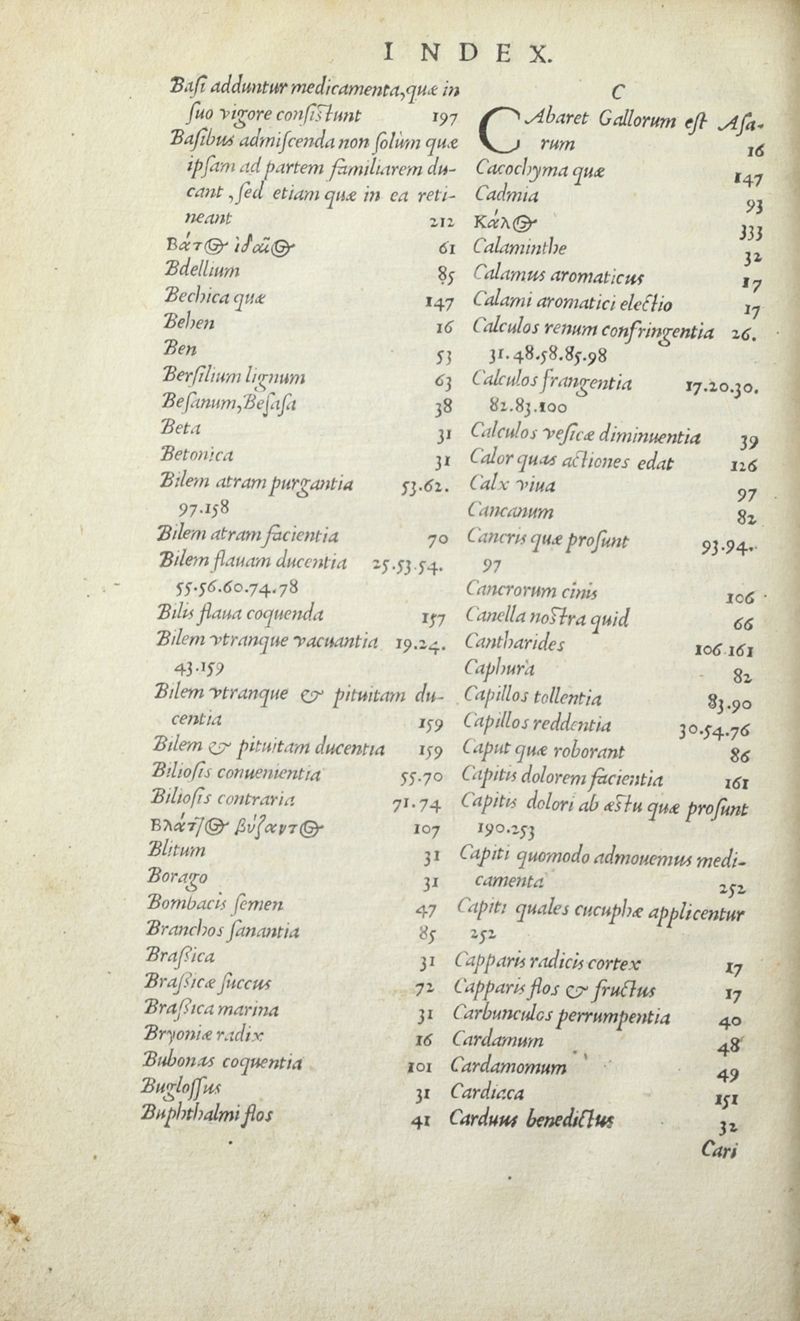 INDEX.
Basi adduntur medicamenta, quæ in
suo vigore consistunt 197
Basibus admiscenda non solùm quæ
ipsam ad partem familiarem du-
cant, sed etiam quæ in ea reti-
neant 212
Βάτος ἰδαῖος 61
Bdellium 85
Bechica quæ 147
Behen 16
Ben 53
Bersilium lignum 63
Besanum, Besasa 38
Beta 31
Betonica 31
Bilem atram purgantia 53.62.
97.158
Bilem atram facientia 70
Bilem flauam ducentia 25.53.54.
55.56.60.74.78
Bilis flaua coquenda 157
Bilem vtranque vacuantia 19.24.
43.159
Bilem vtranque & pituitam du-
centia 159
Bilem & pituitam ducentia 159
Biliosis conuenientia 55.70
Biliosis contraria 71.74
107
Blitum 31
Borago 31
Bombacis semen 47
Branchos sanantia 85
Brassica 31
Brassicæ succus 72
Brassica marina 31
Bryoniæ radix 16
Bubonas coquentia 101
Buglossus 31
Buphthalmi flos 41
C
CAbaret Gallorum est Asa-
rum 16
Cacochyma quæ 147
Cadmia 93
333
Calaminthe 32
Calamus aromaticus 17
Calami aromatici electio 17
Calculos renum confringentia 26.
31.48.58.85.98
Calculos frangentia 17.20.30.
82.83.100
Calculos vesicæ diminuentia 39
Calor quas actiones edat 126
Calx viua 97
Cancanum 82
Cancris quæ prosunt 93.94.
97
Cancrorum cinis 106
Canella nostra quid 66
Cantharides 106.161
Caphura 82
Capillos tollentia 83.90
Capillos reddentia 30.54.76
Caput quæ roborant 86
Capitis dolorem facientia 161
Capitis dolori ab æstu quæ prosunt
190.253
Capiti quomodo admouemus medi-
camenta 252
Capiti quales cucuphæ applicentur
252
Capparis radicis cortex 17
Capparis flos & fructus 17
Carbunculos perrumpentia 40
Cardamum 48
Cardamomum 49
Cardiaca 151
Carduus benedictus 32
Cari